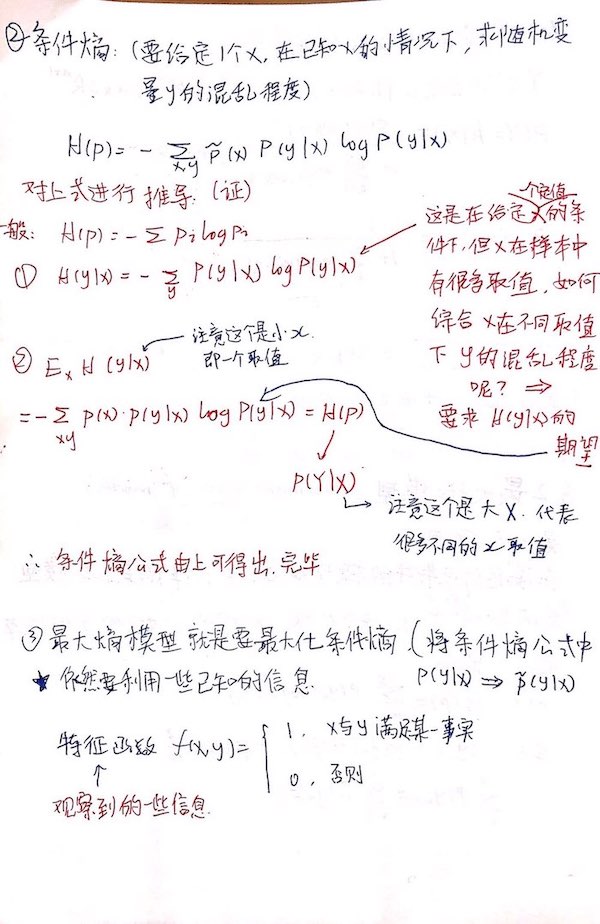 ② 条件熵:(要给定1个x,在已知x的情况下,求随机变
量y的混乱程度)
H(p)= - ∑x,y p̃(x) P(y|x) log P(y|x)
对上式进行推导.(证)
一般: H(p)= - ∑ Pi log Pi
① H(y|x) = - ∑y P(y|x) log P(y|x)
一个定值
这是在给定x的条
件下,但x在样本中
有很多取值,如何
综合x在不同取值
下y的混乱程度
呢? ⇒
要求 H(y|x)的
期望
② Ex H(y|x)
注意这个是小x
即一个取值
= - ∑xy p(x)·p(y|x) log P(y|x) = H(p)
P(Y|X)
注意这个是大X.代表
很多不同的x取值
∴ 条件熵公式由上可得出.完毕
③ 最大熵模型就是要最大化条件熵 (将条件熵公式中
P(y|x) ⇒ p̃(y|x)
★ 依然要利用一些已知的信息
特征函数 f(x,y)= { 1, x与y满足某一事实
0, 否则
↑
观察到的一些信息.